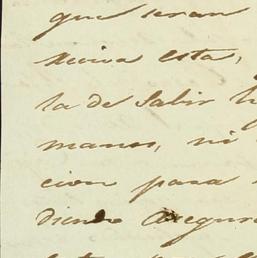 que seran
reciva esta,
la de Salir
manos, ni
cion para
diendo asegura